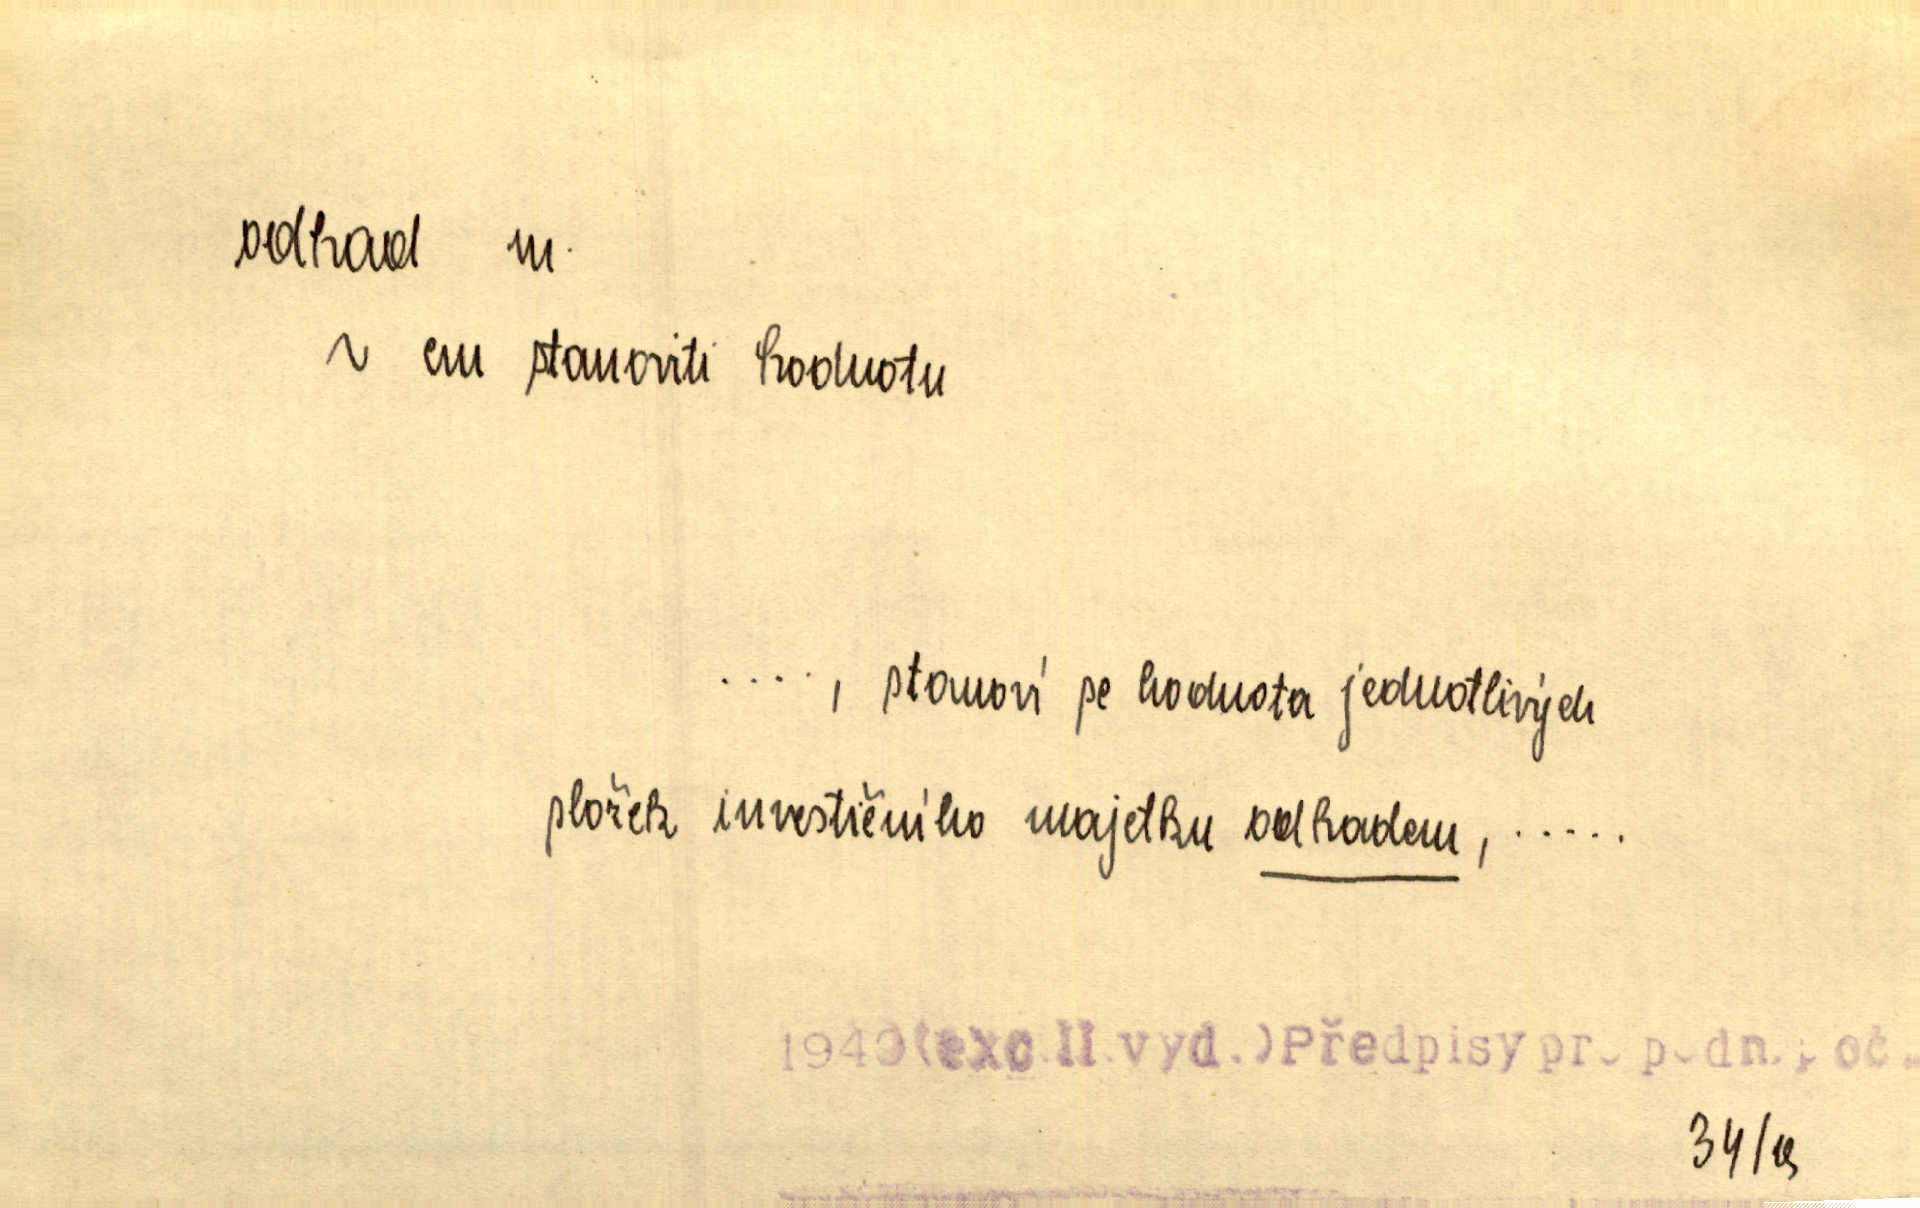 odhad m.
~ em stanoviti hodnotu
...., stanoví se hodnota jednotlivých
položek investičního majetku odhadem, .....
1940(exc.II.vyd.)Předpisy pro podn.
34/